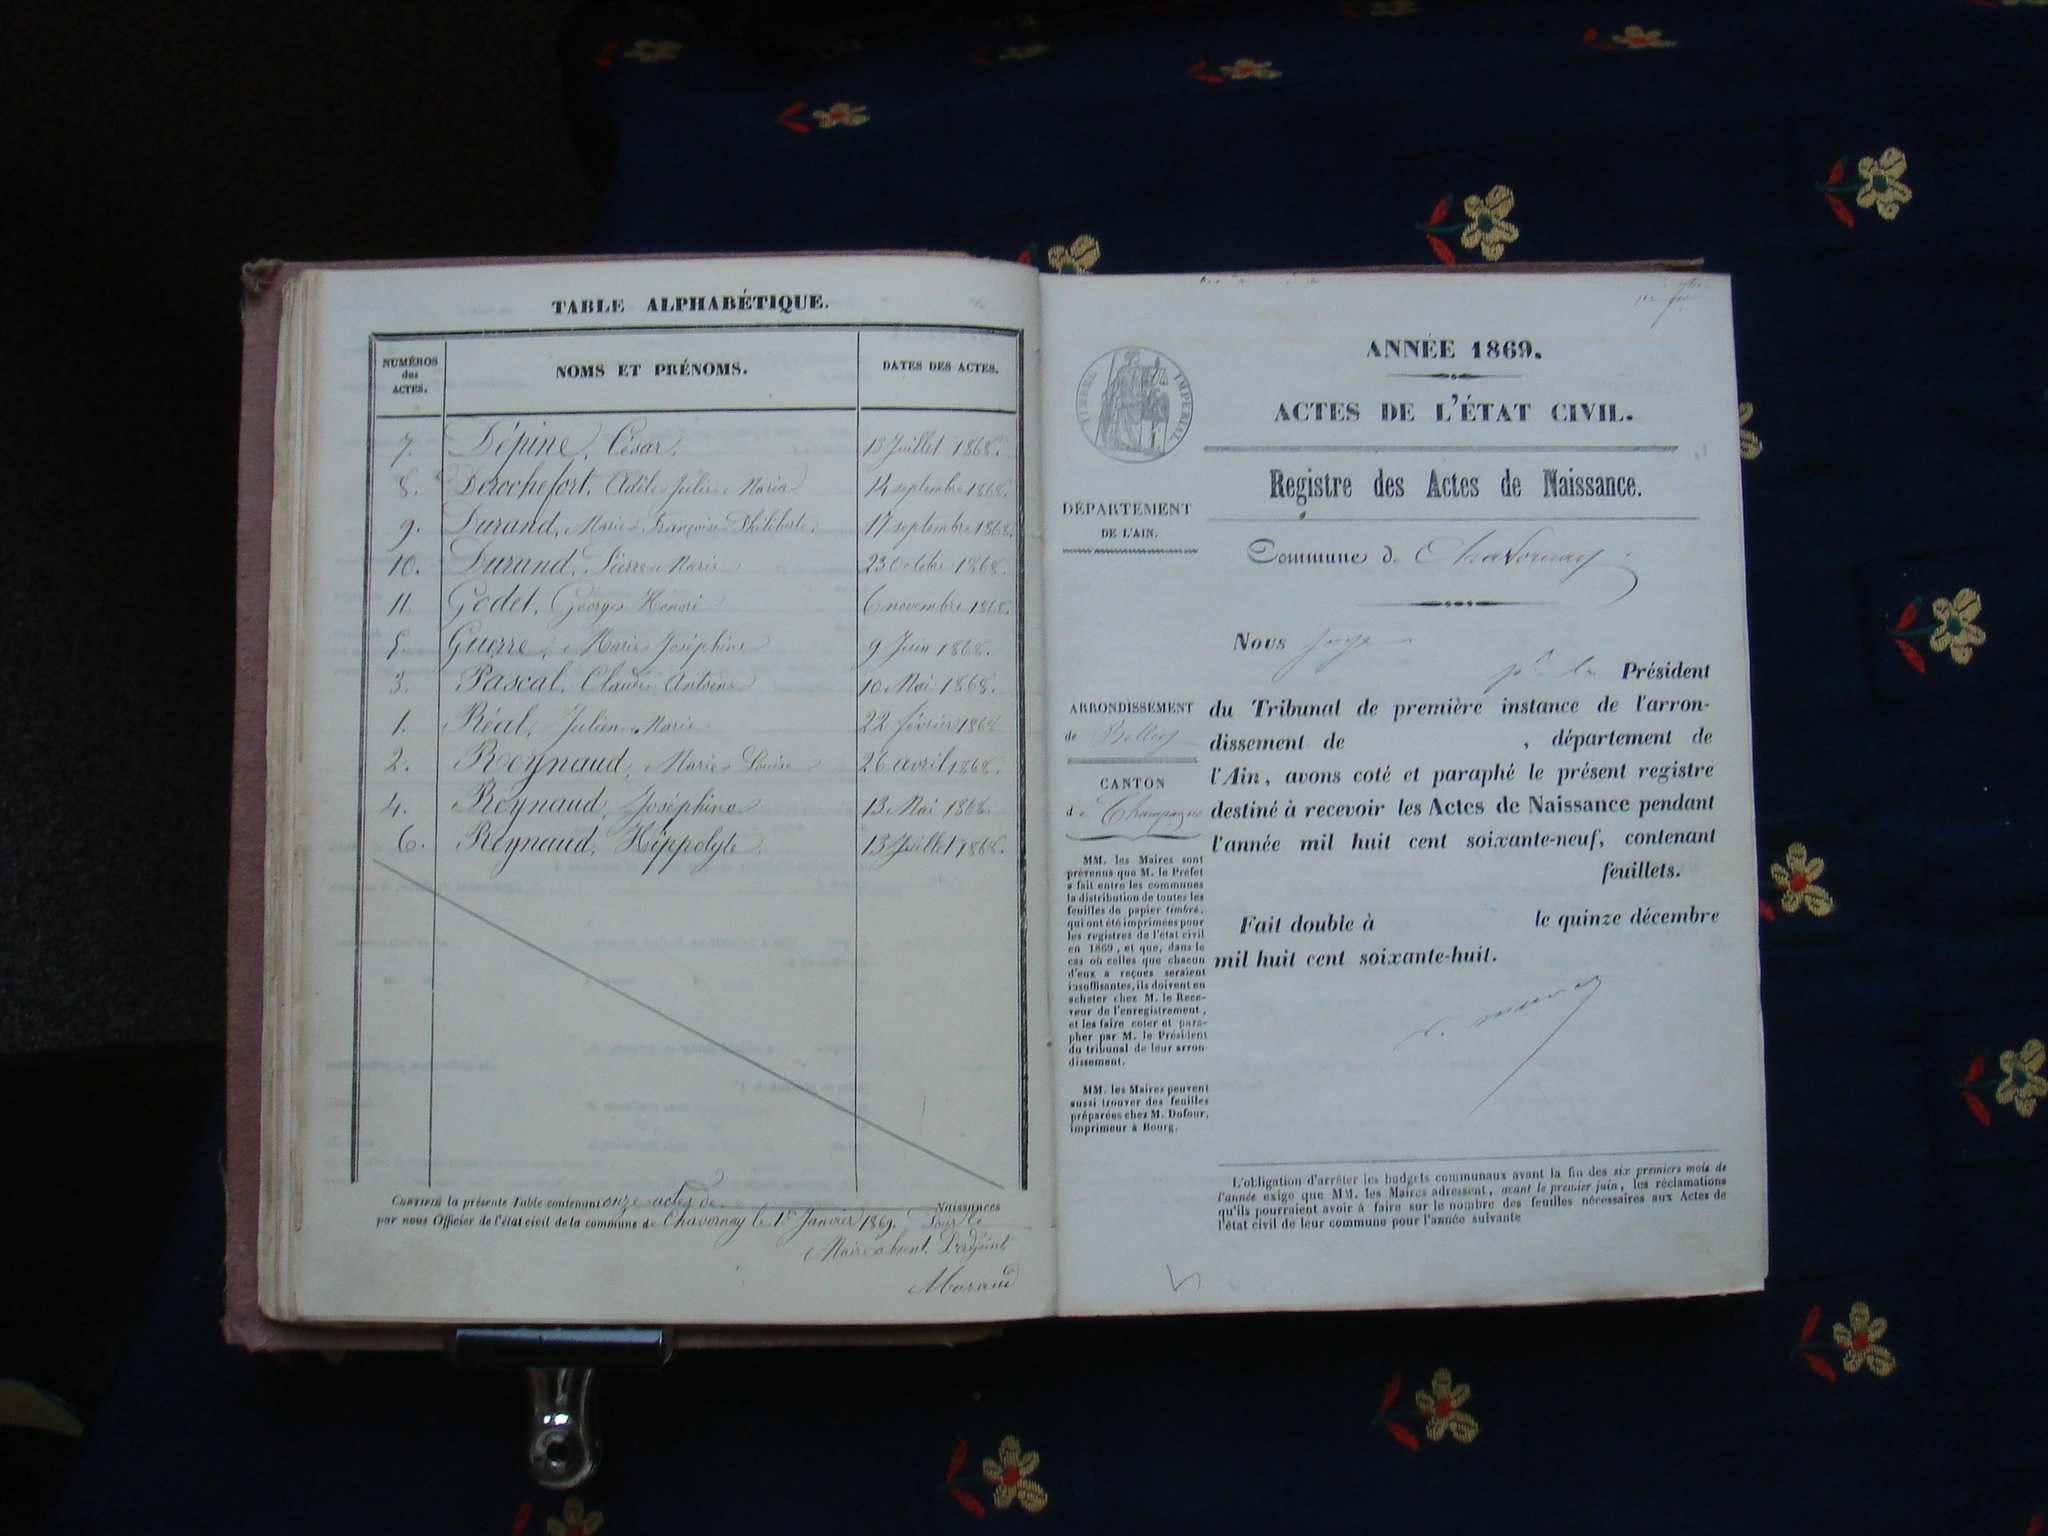 TABLE ALPHABÉTIQUE.
NUMÉROS des ACTES. NOMS ET PRÉNOMS. DATES DES ACTES.
7. Dépine, César. 13 Juillet 1868.
8. Derochefort, Adèle Julie Maria 14 septembre 1868.
9. Durand, Marie Françoise Philiberte. 17 septembre 1868.
10. Durand, Pierre Marie 23 Octobre 1868.
11. Godet, Georges Honoré 6 novembre 1868.
5. Guerre, Marie Joséphine 9 Juin 1868.
3. Pascal, Claude Antoine 10 Mai 1868.
1. Réal, Julien Marie 22 février 1868
2. Reynaud, Marie Louise 26 avril 1868.
4. Reynaud, Joséphine 13 Mai 1868.
6. Reynaud, Hippolyte. 13 Juillet 1868.
CERTIFIÉ la présente Table contenant onze actes de Naissances
par nous Officier de l'état civil de la commune de Chavornay le 1er Janvier 1869. Pour le
Maire absent. L'adjoint
Morand
ANNÉE 1869.
ACTES DE L'ÉTAT CIVIL.
TIMBRE IMPÉRIAL
Registre des Actes de Naissance.
DÉPARTEMENT
DE L'AIN.
Commune d. Chavornay
ARRONDISSEMENT
de Belley
CANTON
de Champagne
MM. les Maires sont
prévenus que M. le Préfet
a fait entre les communes
la distribution de toutes les
feuilles de papier timbré,
qui ont été imprimées pour
les registres de l'état civil
en 1869, et que, dans le
cas où celles que chacun
d'eux a reçues seraient
insuffisantes, ils doivent en
acheter chez M. le Rece-
veur de l'enregistrement,
et les faire coter et para-
pher par M. le Président
du tribunal de leur arron-
dissement.
MM. les Maires peuvent
aussi trouver des feuilles
préparées chez M. Dufour,
imprimeur à Bourg.
Nous Juge
pr le Président
du Tribunal de première instance de l'arron-
dissement de , département de
l'Ain, avons coté et paraphé le présent registre
destiné à recevoir les Actes de Naissance pendant
l'année mil huit cent soixante-neuf, contenant
feuillets.
Fait double à le quinze décembre
mil huit cent soixante-huit.
L'obligation d'arrêter les budgets communaux avant la fin des six premiers mois de
l'année exige que MM. les Maires adressent, avant le premier juin, les réclamations
qu'ils pourraient avoir à faire sur le nombre des feuilles nécessaires aux Actes de
l'état civil de leur commune pour l'année suivante